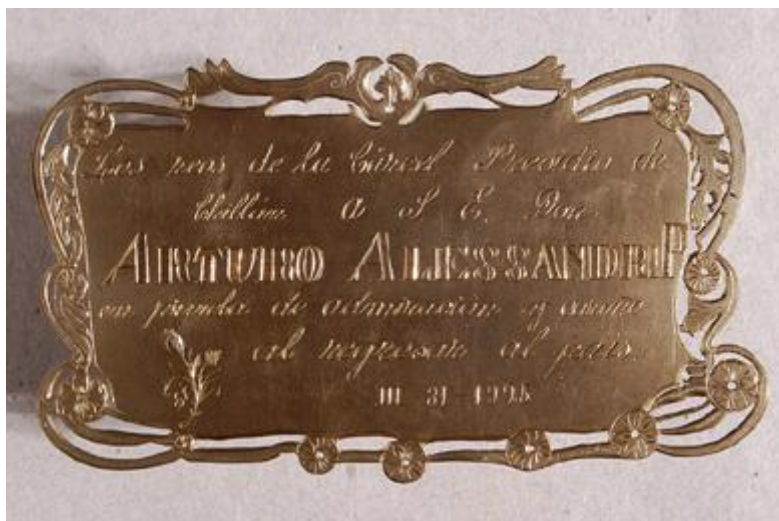 Los reos de la Cárcel Presidio de
Chillán A S E. Don
ARTURO ALESSANDRI P
en prueba de admiración y cariño
al regresar al país.
III 21 - 1925